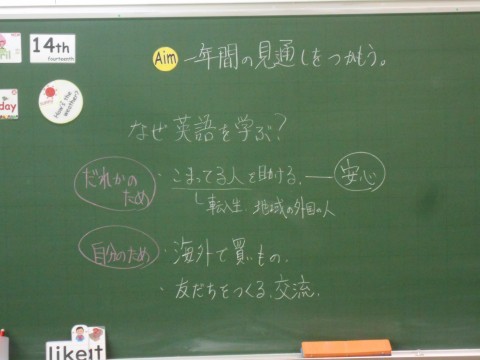 14th
fourteenth
Aim 一年間の見通しをつかもう。
day
How's the weather?
なぜ英語を学ぶ?
だれかのため
・こまってる人を助ける。 ― 安心
転入生、地域の外国の人
自分のため
・海外で買いもの。
・友だちをつくる、交流。
like it